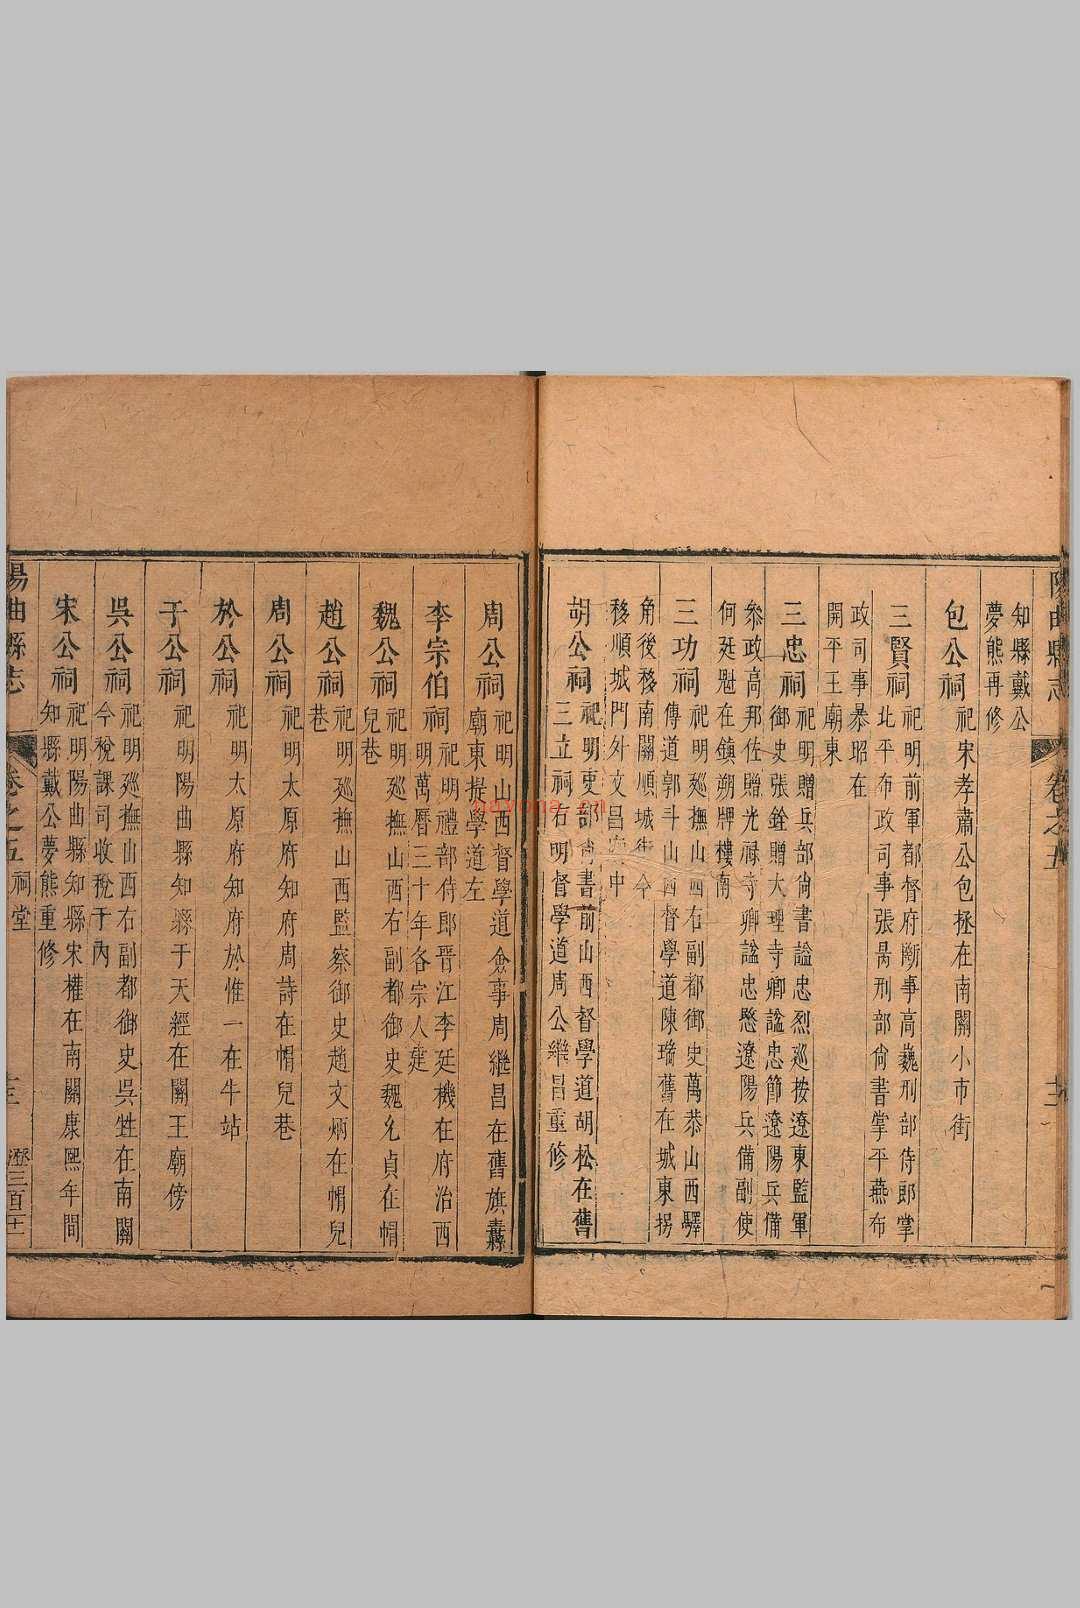 陽曲縣志
卷之五
知縣戴公
夢熊再修
包公祠
祀宋孝肅公包拯在南關小市街
三賢祠
祀明前軍都督府斷事高巍刑部侍郎掌
北平布政司事張昺刑部尚書掌平燕布
政司事暴昭在
開平王廟東
三忠祠
祀明贈兵部尚書謚忠烈廵按遼東監軍
御史張銓贈大理寺卿謚忠節遼陽兵備
叅政高邦佐贈光祿寺卿謚忠愍遼陽兵備副使
何廷魁在鎮朔牌樓南
三功祠
祀明廵撫山西右副都御史萬恭山西驛
傳道郭斗山西督學道陳瑞舊在城東拐
角後移南關順城街今
移順城門外文昌廟中
胡公祠
祀明吏部尚書前山西督學道胡松在舊
三立祠右明督學道周公繼昌重修
周公祠
祀明山西督學道僉事周繼昌在舊旗纛
廟東提學道左
李宗伯祠
祀明禮部侍郎晋江李廷機在府治西
明萬曆三十年各宗人建
魏公祠
祀明廵撫山西右副都御史魏允貞在帽
兒巷
趙公祠
祀明廵撫山西監察御史趙文炳在帽兒
巷
周公祠
祀明太原府知府周詩在帽兒巷
於公祠
祀明太原府知府於惟一在牛站
于公祠
祀明陽曲縣知縣于天經在關王廟傍
吳公祠
祀明廵撫山西右副都御史吳甡在南關
今稅課司收稅于內
宋公祠
祀明陽曲縣知縣宋權在南關康熙年間
知縣戴公夢熊重修
陽曲縣志
卷之五 祠堂